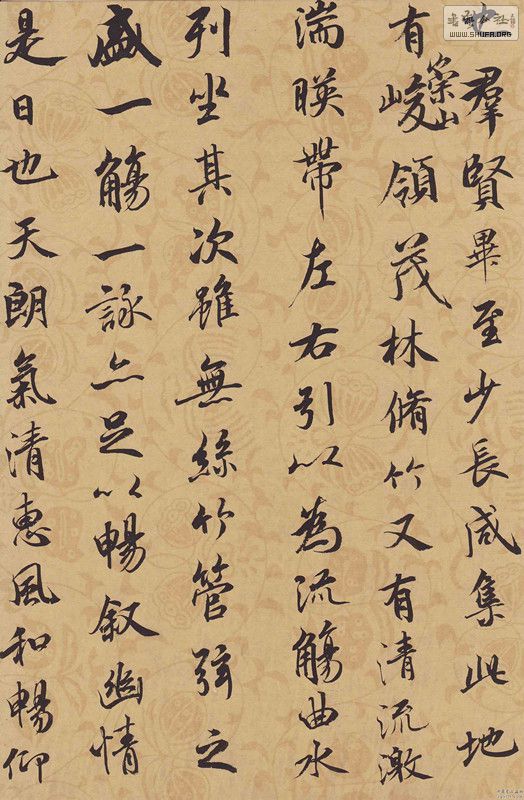 羣賢畢至少長咸集此地
有崇山峻領茂林脩竹又有清流激
湍暎帶左右引以為流觴曲水
列坐其次雖無絲竹管弦之
盛一觴一詠亦足以暢叙幽情
是日也天朗氣清惠風和暢仰
WWW.SHUFA.ORG